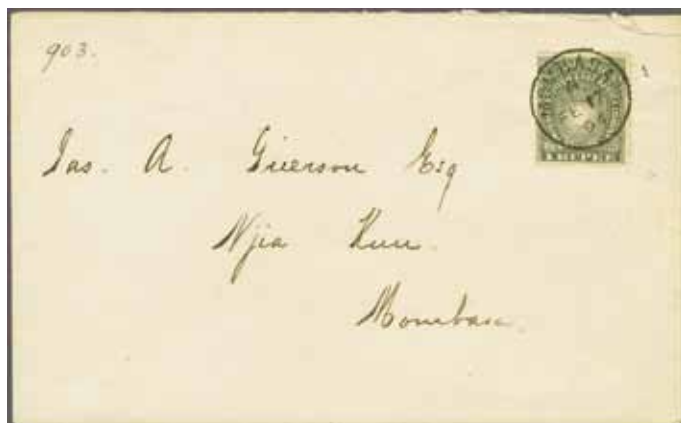 903.
MOMBASA
1 RUPEE
Jas. A. Grierson Esq
Njia Kuu.
Mombasa.